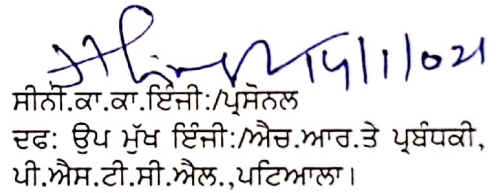 14/1/021
ਸੀਨੀ.ਕਾ.ਕਾ.ਇੰਜੀ:/ਪ੍ਰਸੋਨਲ
ਦਫ: ਉਪ ਮੁੱਖ ਇੰਜੀ:/ਐਚ.ਆਰ.ਤੇ ਪ੍ਰਬੰਧਕੀ,
ਪੀ.ਐਸ.ਟੀ.ਸੀ.ਐਲ.,ਪਟਿਆਲਾ।